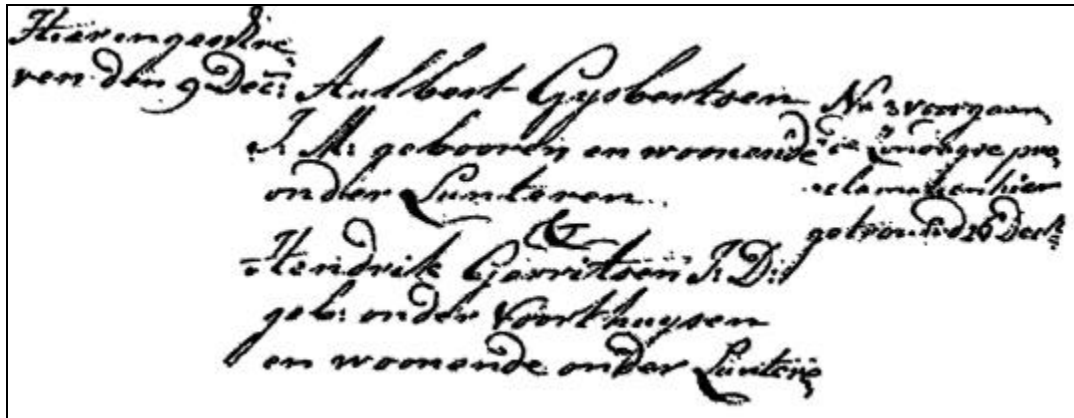 Hier ingeschre
ven den 9 Dec:
Aalbert Gysbertsen
J: M: gebooren en woonende
onder Lunteren.
&
Hendrik Gerritsen J: D:
geb: onder Voorthuysen
en woonende onder Lunter̅e
Na 3 voorgaan
de Zondagse pro
clamatien hier
getrouwd 26 Decb: